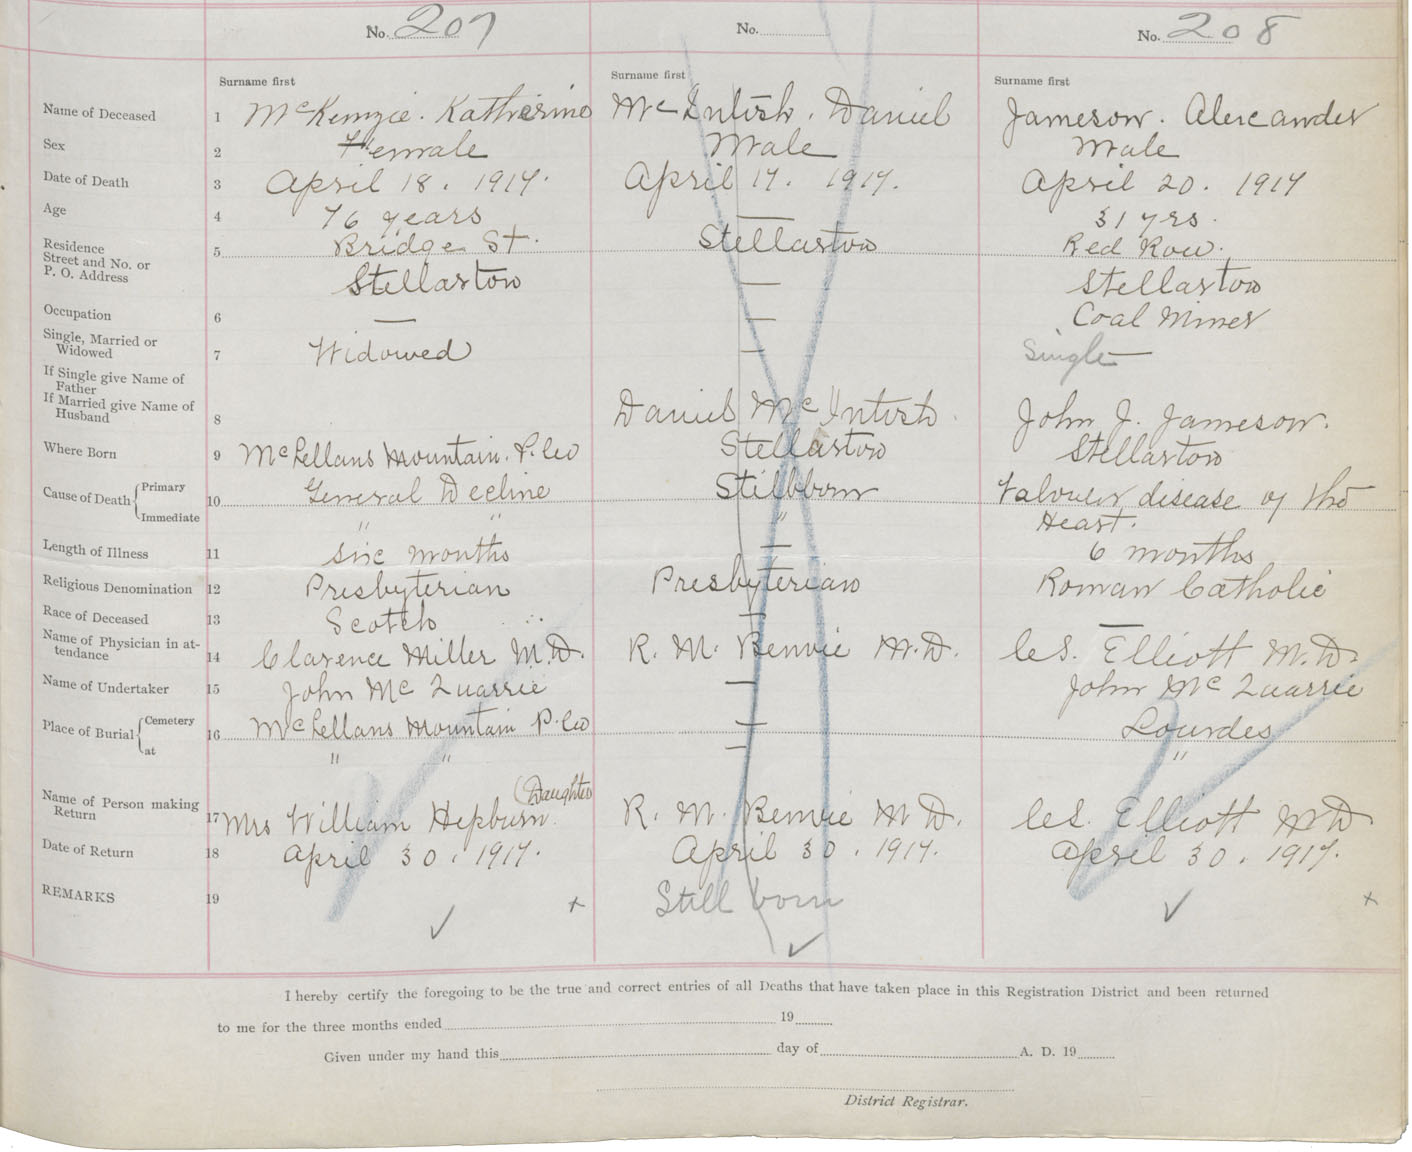 No. 207 No. No. 208
Surname first Surname first Surname first
Name of Deceased 1 McKenzie. Katherine McIntosh. Daniel Jameson. Alexander
Sex 2 Female Male Male
Date of Death 3 April 18. 1917. April 17. 1917. April 20. 1917
Age 4 76 years — 31 yrs.
Residence 5 Bridge St. Stellarton Red Row.
Street and No. or
P. O. Address Stellarton — Stellarton
Occupation 6 — — Coal Miner
Single, Married or
Widowed 7 Widowed — Single —
If Single give Name of
Father
If Married give Name of
Husband 8 Daniel McIntosh. John J. Jameson.
Where Born 9 McLellans Mountain. P. Co Stellarton Stellarton
Cause of Death { Primary 10 General Decline Stillborn Valvular disease of the
Immediate " " " Heart.
Length of Illness 11 six months — 6 months
Religious Denomination 12 Presbyterian Presbyterian Roman Catholic
Race of Deceased 13 Scotch — —
Name of Physician in at-
tendance 14 Clarence Miller M.D. R. M. Benvie M.D. C.S. Elliott M.D.
Name of Undertaker 15 John McQuarrie — John McQuarrie
Place of Burial { Cemetery 16 McLellans Mountain P. Co — Lourdes
at " " — "
(Daughter
Name of Person making
Return 17 Mrs William Hepburn. R. M. Benvie M D. C.S. Elliott M D.
Date of Return 18 April 30. 1917. April 30. 1917. April 30. 1917.
REMARKS 19 Still born
I hereby certify the foregoing to be the true and correct entries of all Deaths that have taken place in this Registration District and been returned
to me for the three months ended 19
Given under my hand this day of A. D. 19
District Registrar.